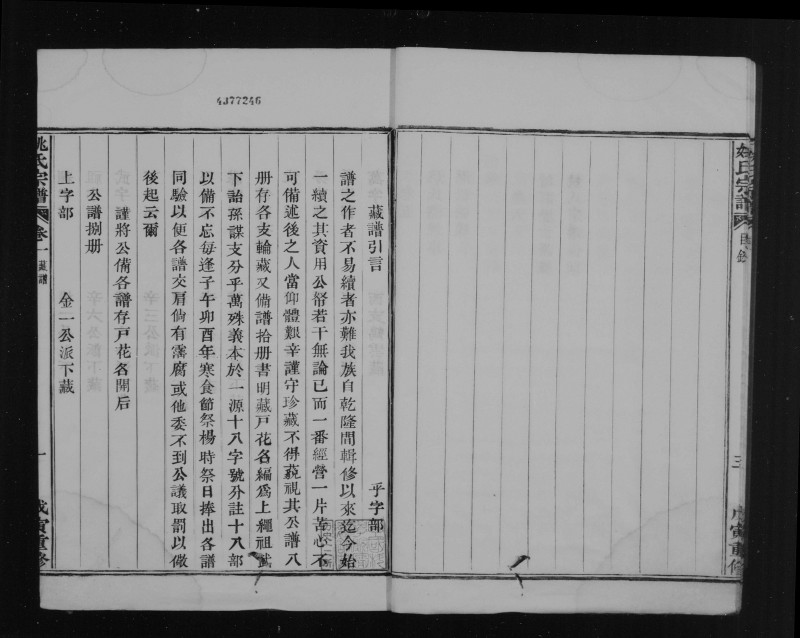 4J77246
姚氏宗譜
目錄
三
戊寅重修
藏譜引言
乎字部
譜之作者不易續者亦難我族自乾隆間輯修以來迄今始
一續之其資用公帑若干無論已而一番經營一片苦心不
可備述後之人當仰體艱辛謹守珍藏不得藐視其公譜八
册存各支輪藏又備譜拾册書明藏戶花名編爲上繩祖武
下詒孫謀支分乎萬殊義本於一源十八字號分註十八部
以備不忘每逢子午卯酉年寒食節祭楊時祭日捧出各譜
同驗以便各譜交肩倘有霑腐或他委不到公議取罰以儆
後起云爾
謹將公備各譜存戶花名開后
公譜捌册
上字部
金一公派下藏
姚氏宗譜
卷一
藏譜
一
戊寅重修